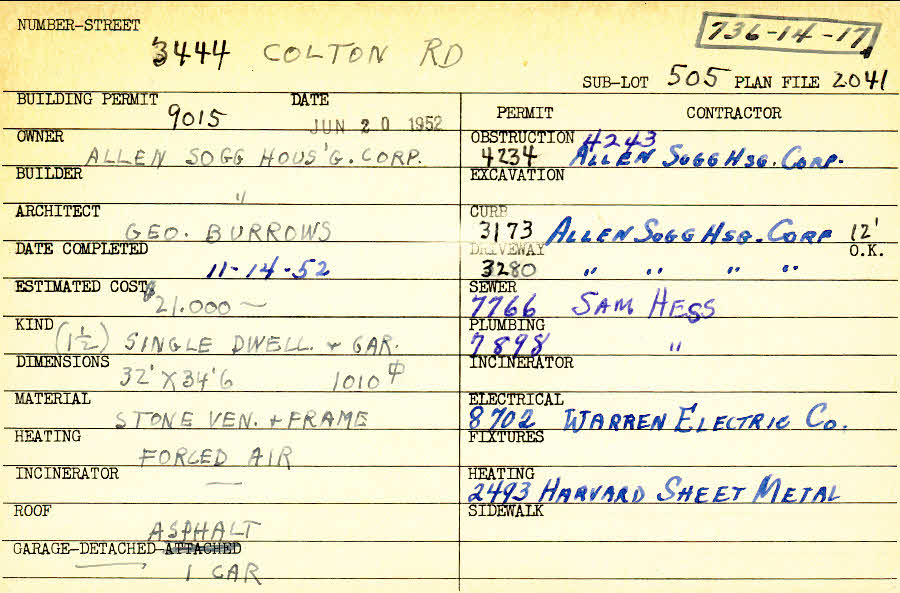 NUMBER-STREET
3444 COLTON RD
736-14-17
SUB-LOT 505 PLAN FILE 2041
BUILDING PERMIT DATE
9015 JUN 20 1952
OWNER
ALLEN SOGG HOUS'G. CORP.
BUILDER
"
ARCHITECT
GEO. BURROWS
DATE COMPLETED
11-14-52
ESTIMATED COST
$21,000 ~
KIND
(1 1/2) SINGLE DWELL. + GAR.
DIMENSIONS
32' X 34'6 1010
MATERIAL
STONE VEN. + FRAME
HEATING
FORCED AIR
INCINERATOR
—
ROOF
ASPHALT
GARAGE-DETACHED-ATTACHED
1 CAR
PERMIT CONTRACTOR
OBSTRUCTION 4243
4234 ALLEN SOGG HSG. CORP.
EXCAVATION
CURB
3173 ALLEN SOGG HSG. CORP 12'
DRIVEWAY O.K.
3280 " " " "
SEWER
7766 SAM HESS
PLUMBING
7898 "
INCINERATOR
ELECTRICAL
8702 WARREN ELECTRIC CO.
FIXTURES
HEATING
2493 HARVARD SHEET METAL
SIDEWALK